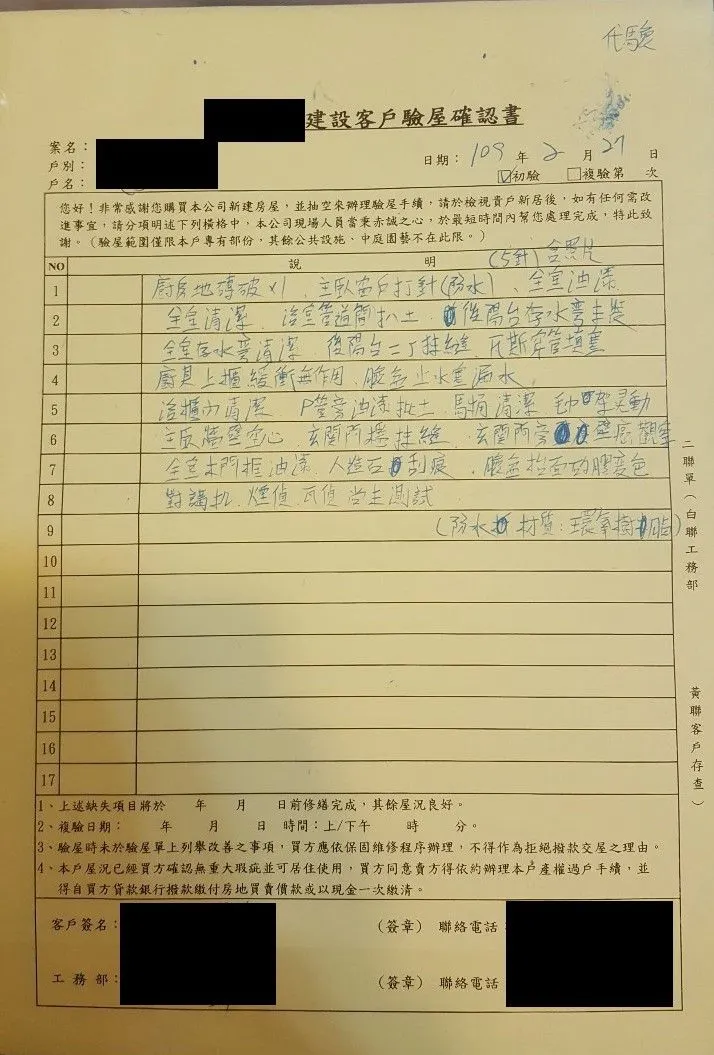 代驗
建設客戶驗屋確認書
案名：
戶別：
戶名：
日期：109年2月27日
☑初驗 □複驗第 次
您好！非常感謝您購買本公司新建房屋，並抽空來辦理驗屋手續，請於檢視貴戶新居後，如有任何需改
進事宜，請分項明述下列橫格中，本公司現場人員當秉赤誠之心，於最短時間內幫您處理完成，特此致
謝。（驗屋範圍僅限本戶專有部份，其餘公共設施、中庭園藝不在此限。）
NO 說明 (5針)含照片
1 廚房地磚破×1、主臥窗戶打針(防水)、全室油漆
2 全室清潔、浴室管道間批土、後陽台存水彎未裝
3 全室存水彎清潔 後陽台二丁掛縫、瓦斯穿管填塞
4 廚具上櫃緩衝無作用、臉盆止水塞漏水
5 浴櫃內清潔 P管旁油漆批土 馬桶清潔 毛巾架晃動
6 主臥牆壁空心 玄關門檻掛縫、玄關門旁壁底觀察
7 全室木門框油漆、人造石刮痕、臉盆抬面矽膠變色
8 對講机、煙偵、瓦偵尚未測試
9 (防水材質:環氧樹脂)
10
11
12
13
14
15
16
17
1、上述缺失項目將於 年 月 日前修繕完成，其餘屋況良好。
2、複驗日期： 年 月 日 時間：上/下午 時 分。
3、驗屋時未於驗屋單上列舉改善之事項，買方應依保固維修程序辦理，不得作為拒絕撥款交屋之理由。
4、本戶屋況已經買方確認無重大瑕疵並可居住使用，買方同意賣方得依約辦理本戶產權過戶手續，並
得自買方貸款銀行撥款繳付房地買賣價款或以現金一次繳清。
客戶簽名： （簽章） 聯絡電話：
工務部： （簽章） 聯絡電話
二聯單（白聯工務部 黃聯客戶存查）